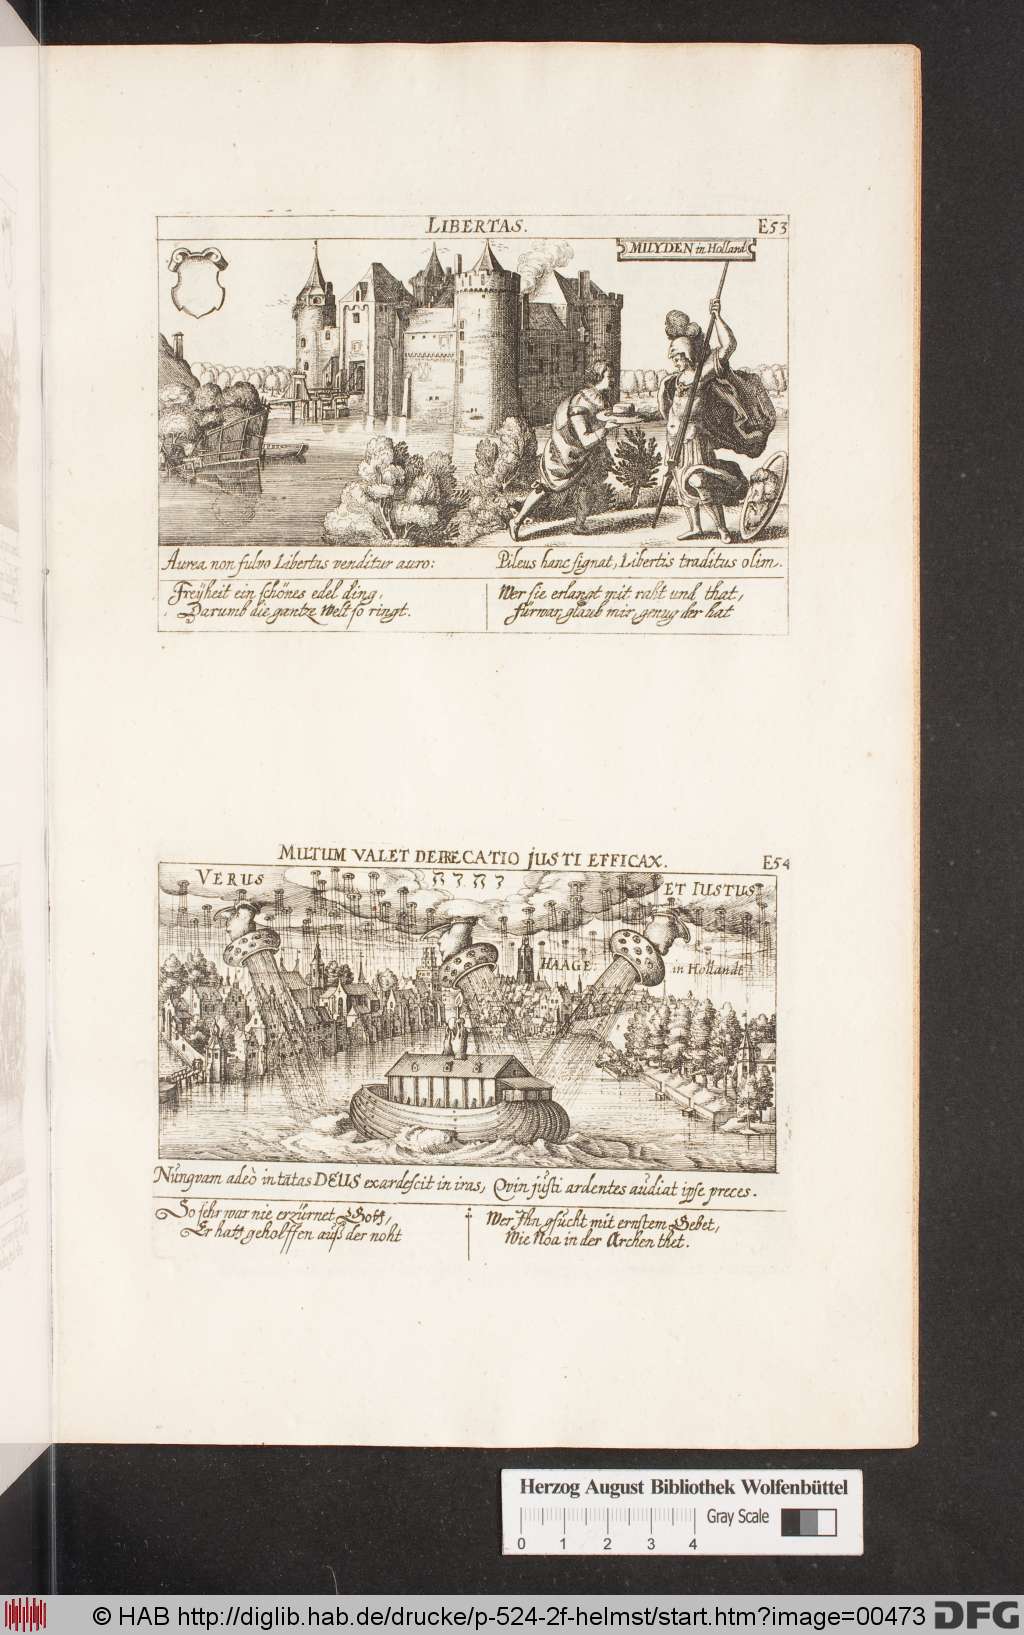 LIBERTAS.
E53
MUYDEN in Holland
Aurea non fulvo Libertas venditur auro:
Pileus hanc signat, Libertis traditus olim.
Freÿheit ein schönes edel ding,
Darumb die gantze Welt so ringt.
Wer sie erlangt mit raht und that,
fürwar, glaub mir, genug der hat
MULTUM VALET DEPRECATIO JUSTI EFFICAX.
E54
VERUS
ET IUSTUS
HAAGE in Hollandt
Nunqvam adeò intatas DEUS exardescit in iras,
Qvin justi ardentes audiat ipse preces.
So sehr war nie erzürnet Gott,
Er hatt geholffen auß der noht
Wer Ihn gsucht mit ernstem Gebet,
Wie Noa in der Archen thet.
Herzog August Bibliothek Wolfenbüttel
Gray Scale
0 1 2 3 4
© HAB http://diglib.hab.de/drucke/p-524-2f-helmst/start.htm?image=00473
DFG